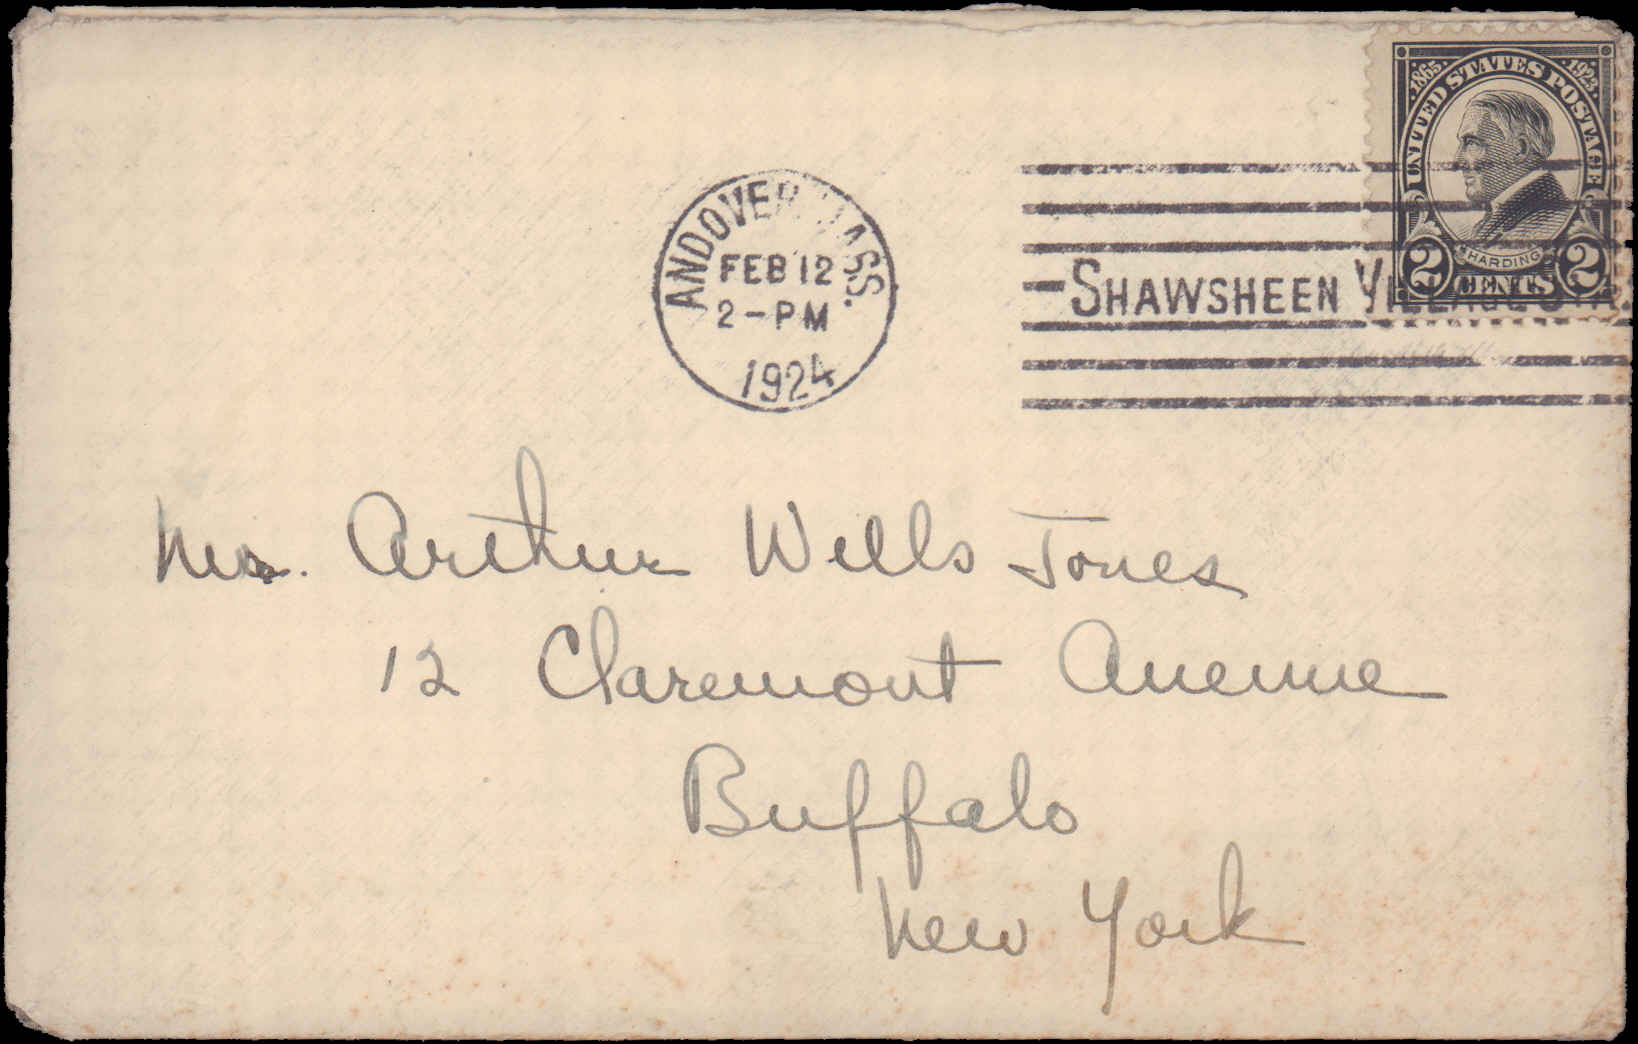 1865 1923
UNITED STATES POSTAGE
HARDING
2 CENTS 2
ANDOVER MASS.
FEB 12
2-PM
1924
SHAWSHEEN VILLAGE STA.
Mrs. Arthur Wells Jones
12 Claremont Avenue
Buffalo
New York